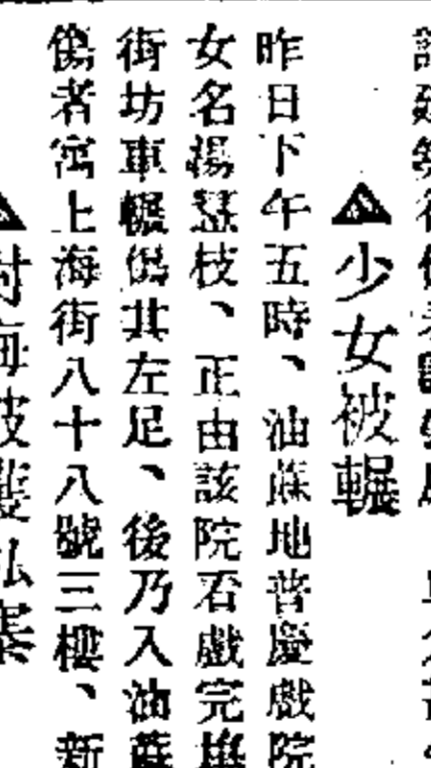 ▲少女被輾
昨日下午五時、油蔴地普慶戲院
女名楊瑟枝、正由該院看戲完畢
街坊車輾傷其左足、後乃入油蔴
傷者寓上海街八十八號三樓、新